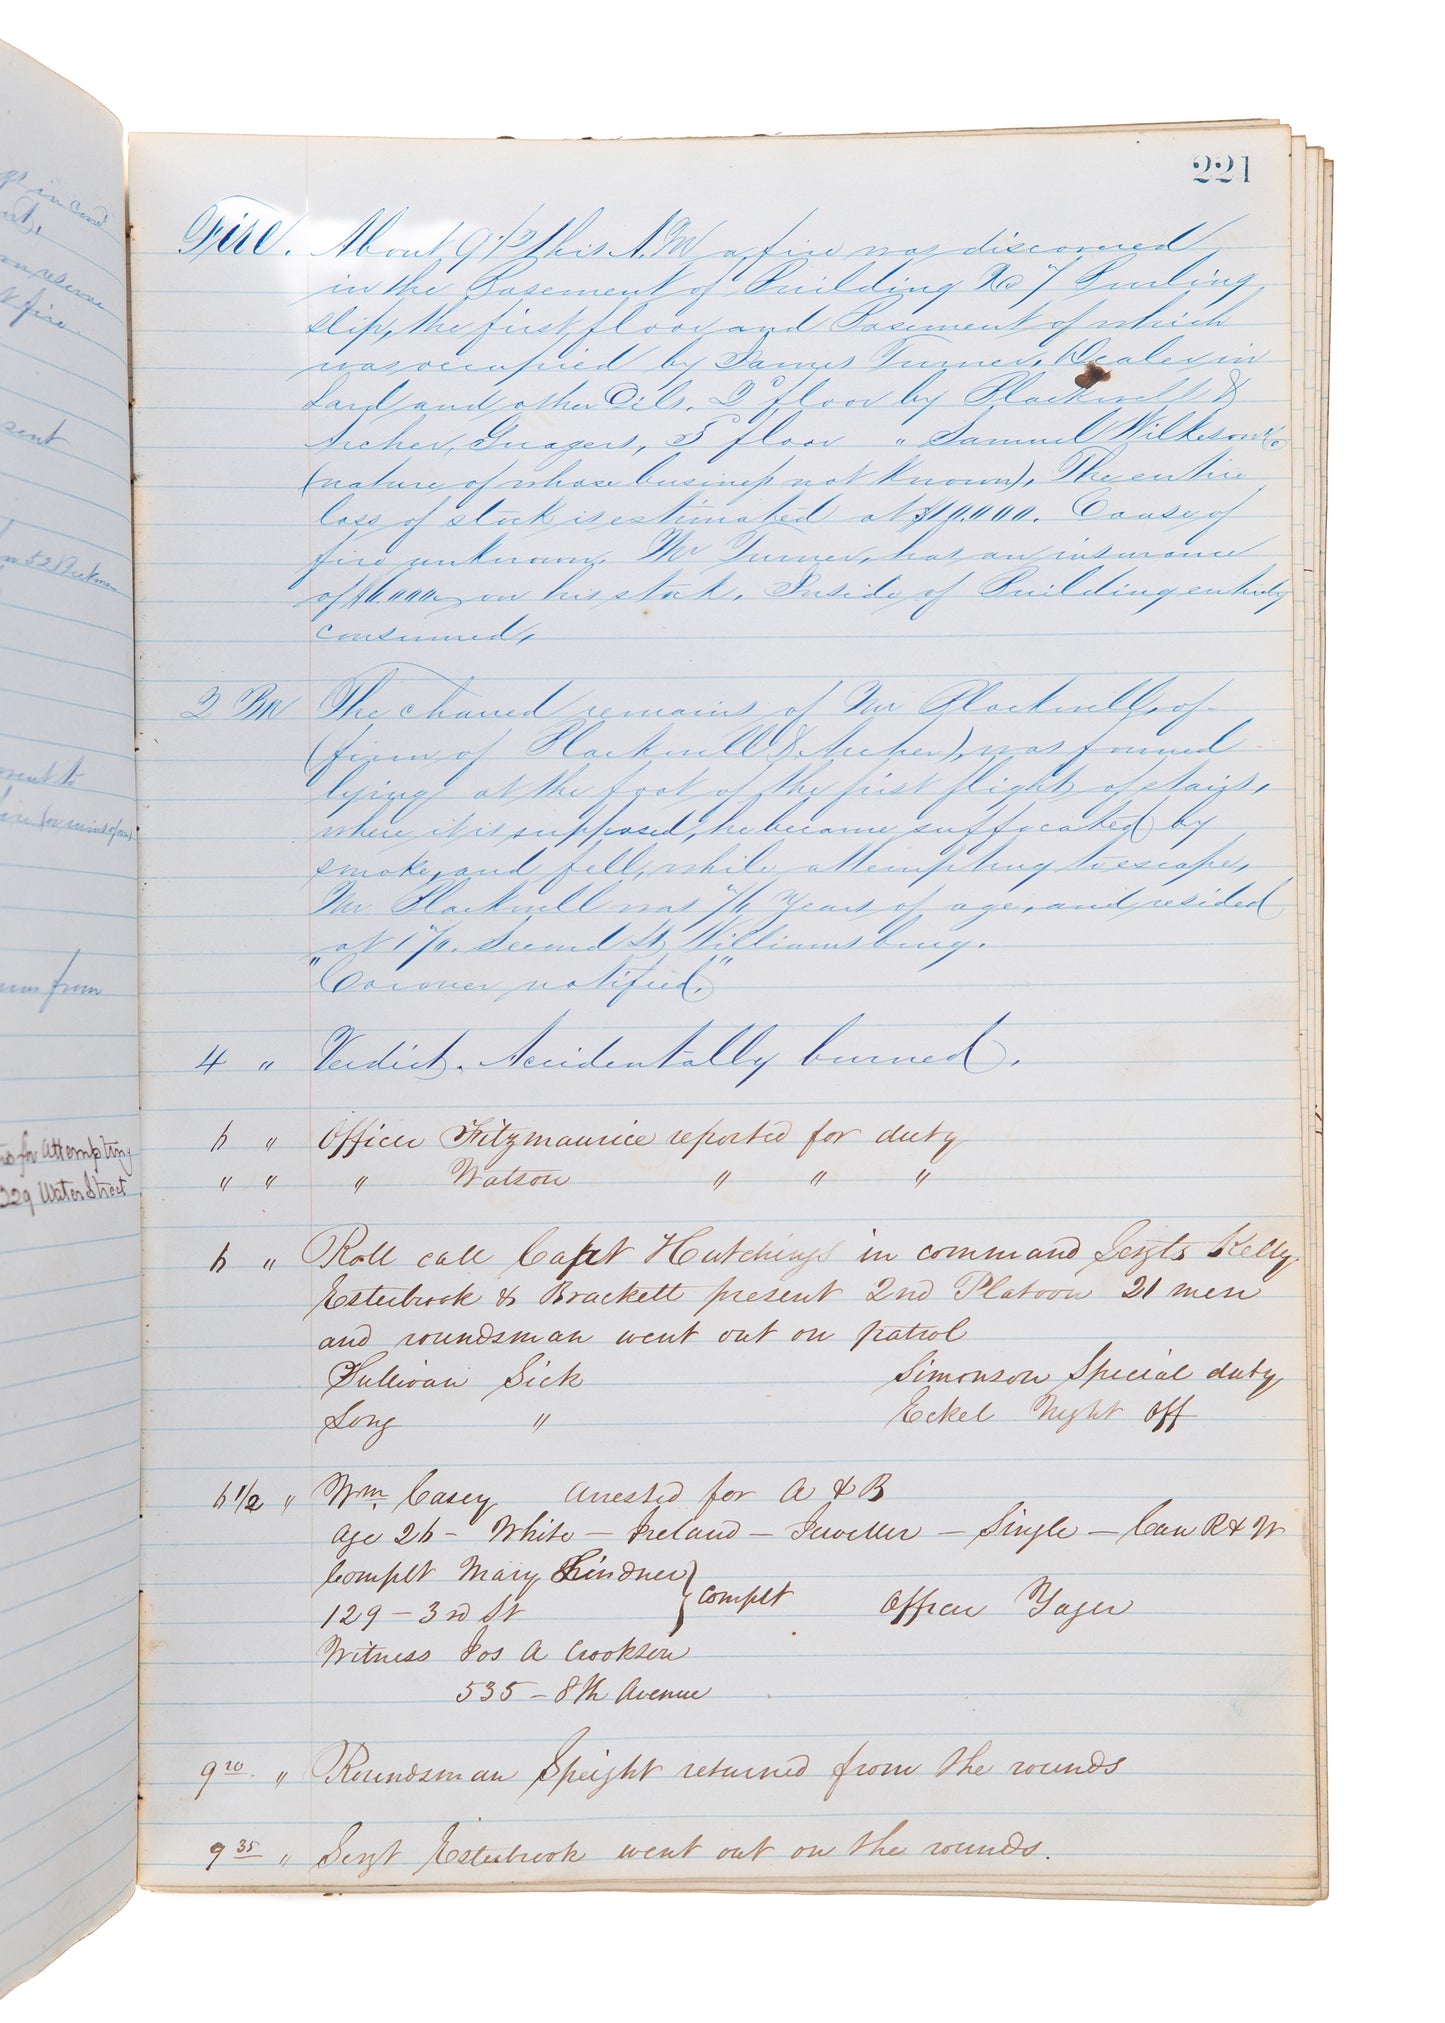 221
Fire. About 9 1/2 this A.M a fire was discovered
in the Basement of Building No 7 Burling
slip, the first floor and Basement of which
was occupied by James Turner, Dealer in
Lard and other Oils. 2d floor by Blackwell &
Archer, Guagers, 3d floor " Samuel Wilkeson & Co
(nature of whose business not known). The entire
loss of stock is estimated at $10,000. Cause of
fire unknown. Mr Turner, has an insurance
of on his stock. Inside of Building entirely
consumed.
2 PM The charred remains of Mr Blackwell, of
(firm of Blackwell & Archer), was found
lying at the foot of the first flight of stairs,
where it is supposed, he became suffocated by
smoke, and fell, while attempting to escape,
Mr Blackwell was years of age, and resided
at Second St, Williamsburg.
"Coroner notified."
4 " Verdict. Accidentally burned.
6 " Officer Fitzmaurice reported for duty
" " " Watson " " "
6 " Roll call Capt Hutchings in command Sergts Kelly
Esterbrook & Brackett present 2nd Platoon 21 men
and roundsman went out on patrol
Sullivan Sick Simonson Special duty
Long " Eckel Night Off
6 1/2 " Wm Casey arrested for A & B
age 26 - White - Ireland - Jeweller - Single - Can R & W
Complt Mary Lindner } Complt Officer Yager
129 - 3rd St
Witness Jos A Crookson
535 - 8th Avenue
9 20 " Roundsman Speight returned from the rounds
9 35 " Sergt Esterbrook went out on the rounds.
ings in cmd
on reserve
fire
sent
52 Beekman
sent to
from
for Attempting
329 Water Street